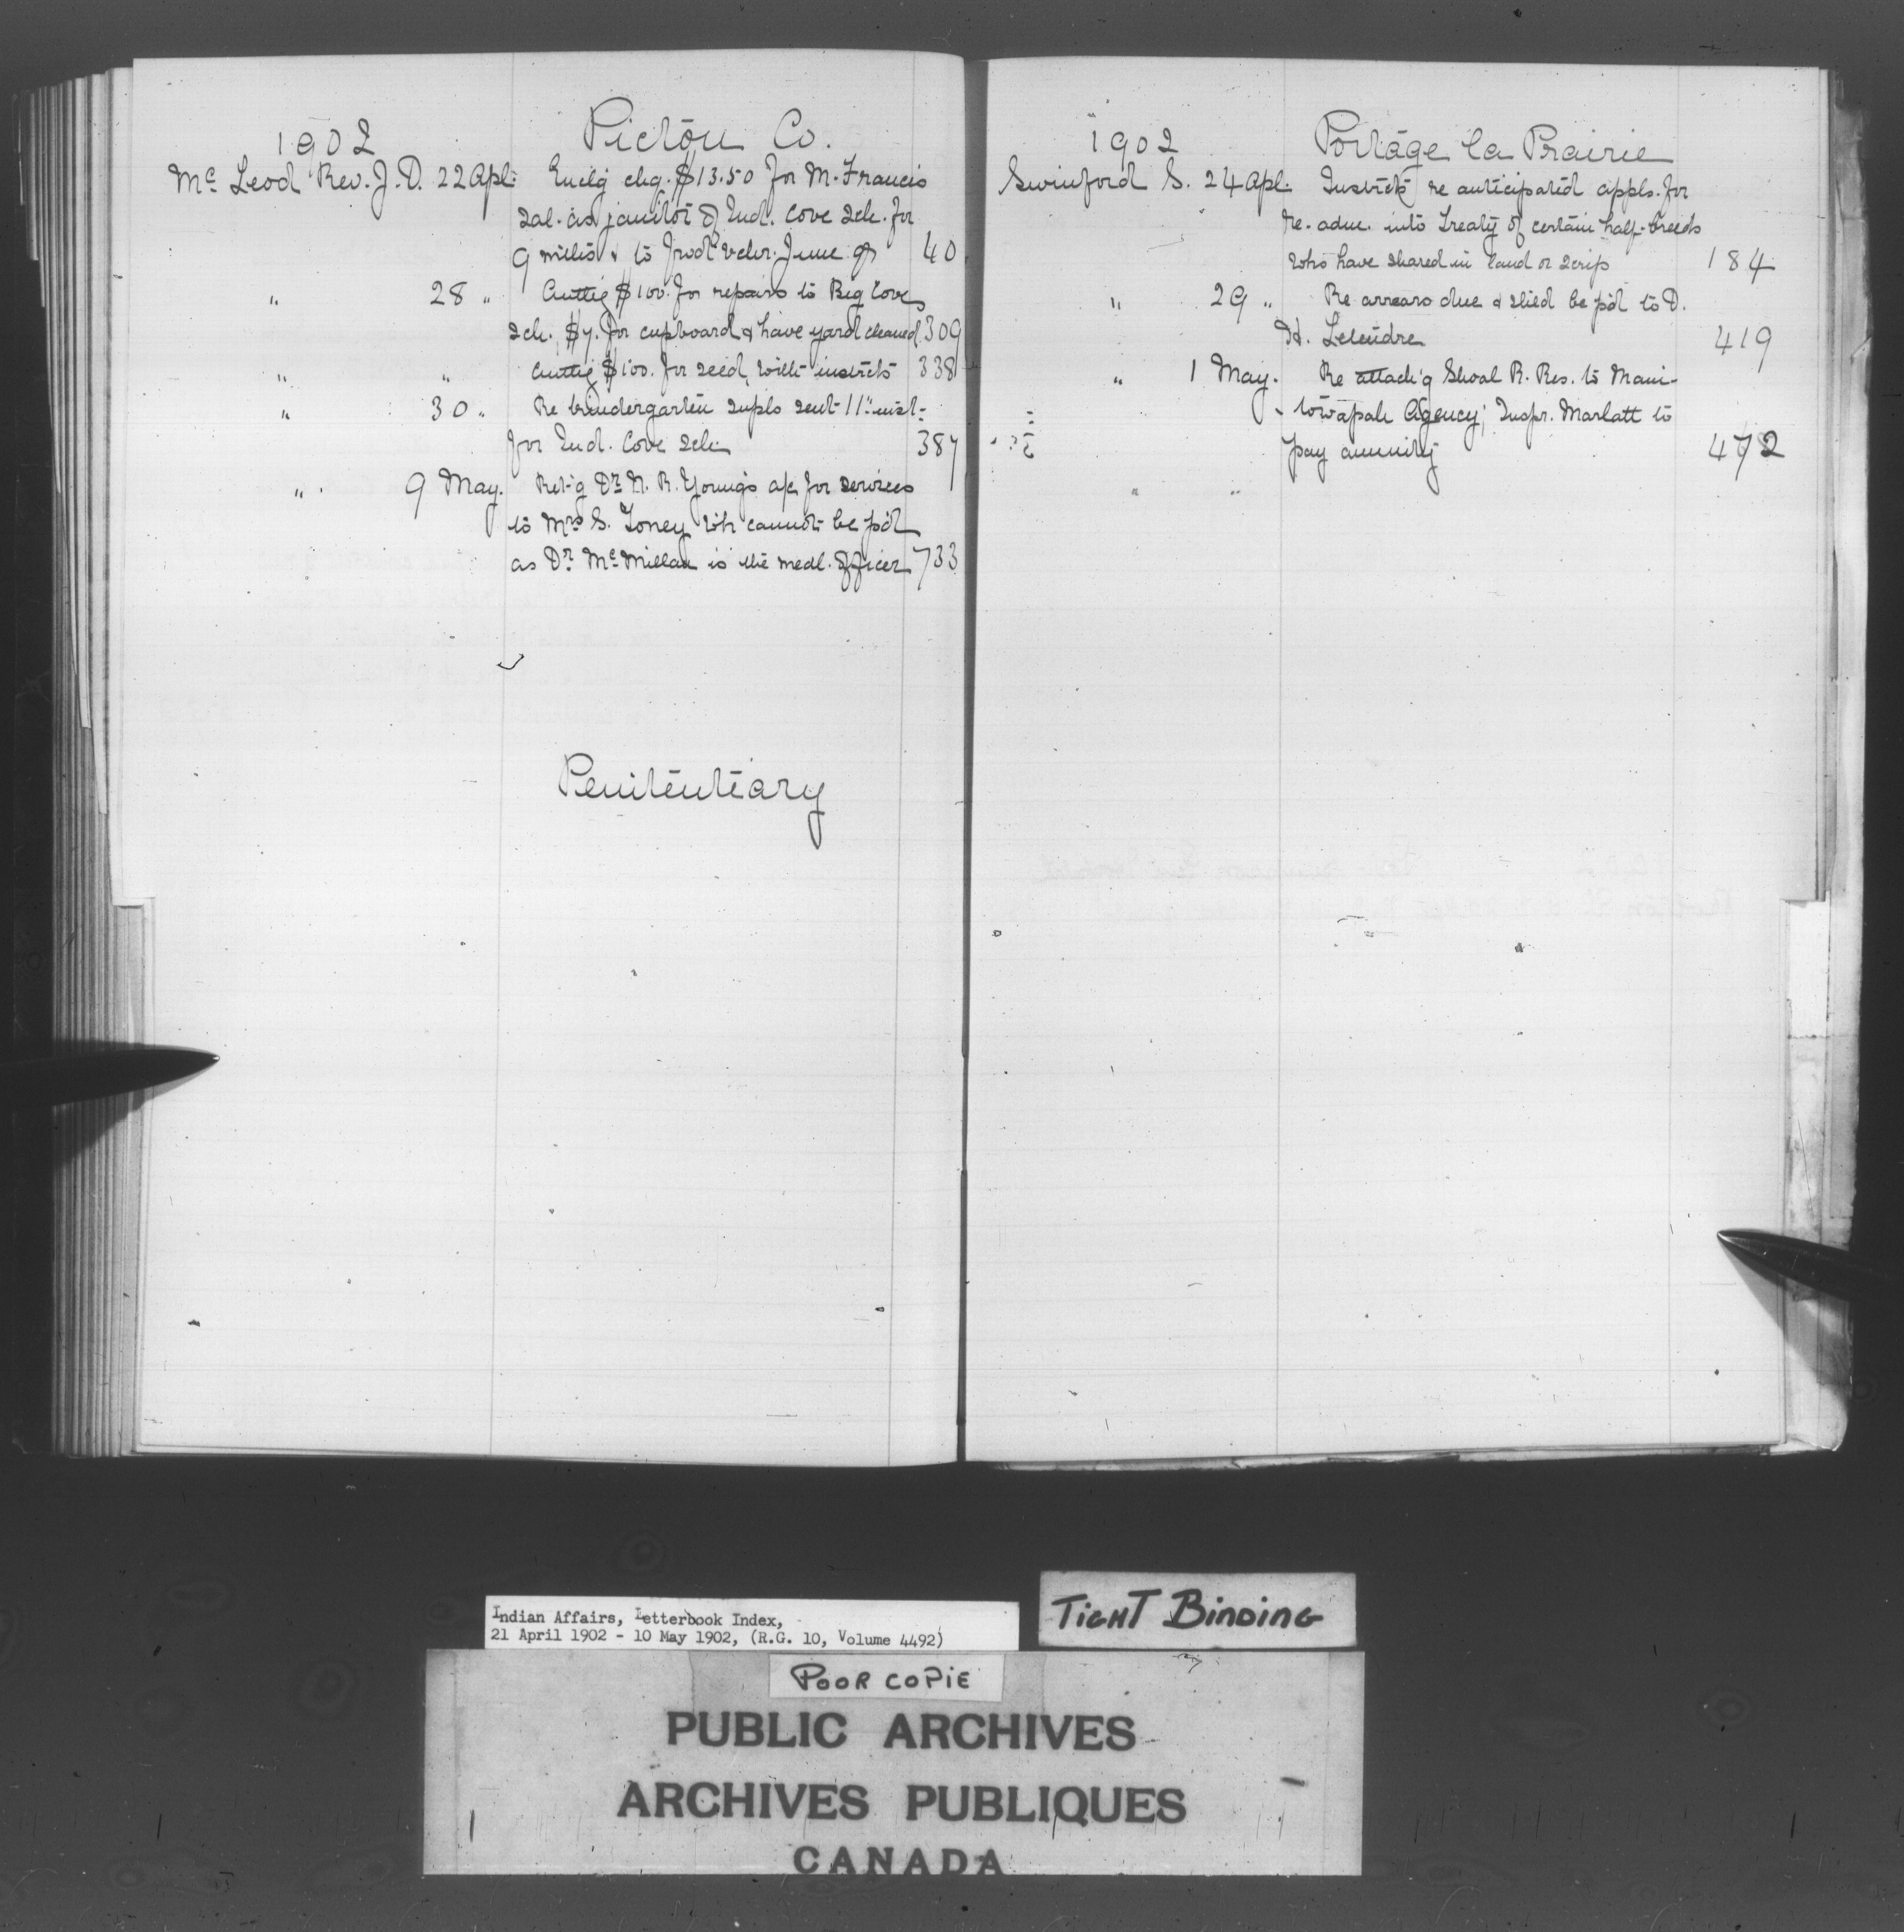 1902 Pictou Co.
Mc Leod Rev. J. D. 22 Apl. Enclg chq. $13.50 for M. Francis
sal. as janitor of Ind. Cove Sch. for
9 mths & to prod vchr. June qr 40
" 28 " Authg $100. for repairs to Big Cove
sch. $7. for cupboard & have yard cleaned 309
" " Authg $100. for seed with instrcts 338
" 30 " Re kindergarten supls sent 11" inst.
for Ind. Cove Sch. 387
" 9 May. Ret-g Dr. N. R. Young's a/c for services
to Mrs S. Toney wh cannot be p'd
as Dr. Mc Millan is the medl. Officer 733
Penitentiary
1902 Portage la Prairie
Swinford S. 24 Apl. Instrcts re anticipated appls. for
re-adm. into Treaty of certain half-breeds
who have shared in land or scrip 184
" 29 " Re arrears due & shld be p'd to D.
H. 419
" 1 May. Re attach'g Shoal R. Res. to Mani-
towapah Agency; Inspr. Marlatt to
pay annuity 472
" "
Indian Affairs, Letterbook Index,
21 April 1902 - 10 May 1902, (R.G. 10, Volume 4492)
TIGHT BINDING
POOR COPIE
PUBLIC ARCHIVES
ARCHIVES PUBLIQUES
CANADA